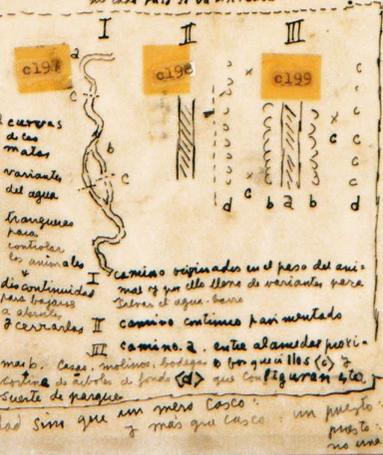 I II III
c197 c198 c199
a
c
b
c
c
d c b a b d
curvas
de las
matas
variantes
del agua
tranqueras
para
controlar
los animales
discontinuidad
para bajarse
a abrirlas
y cerrarlas
I caminos originados en el paso del ani-
mal y por ello lleno de variantes para
salvar el agua. barro
II camino continuo pavimentado
III camino.a. entre alamedas proxi-
mas b. Casas, molinos, bodegas o bosquecillos (c) y
cortina de árboles de fondo (d) que configuran esta
suerte de parques
sino que un mero casco: un puesto:
y más que casco:
puesto:
no una